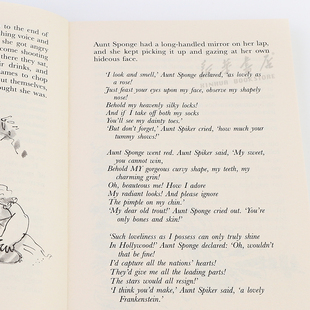 to the end of
thing voice and
she got angry
come shooting
their drinks, and
ames to chop
at themselves,
ought she was.
Aunt Sponge had a long-handled mirror on her lap,
and she kept picking it up and gazing at her own
hideous face.
'I look and smell,' Aunt Sponge declared, 'as lovely as
a rose!
Just feast your eyes upon my face, observe my shapely
nose!
Behold my heavenly silky locks!
And if I take off both my socks
You'll see my dainty toes.'
'But don't forget,' Aunt Spiker cried, 'how much your
tummy shows!'
Aunt Sponge went red. Aunt Spiker said, 'My sweet,
you cannot win,
Behold MY gorgeous curvy shape, my teeth, my
charming grin!
Oh, beauteous me! How I adore
My radiant looks! And please ignore
The pimple on my chin.'
'My dear old trout!' Aunt Sponge cried out. 'You're
only bones and skin!'
'Such loveliness as I possess can only truly shine
In Hollywood!' Aunt Sponge declared: 'Oh, wouldn't
that be fine!
I'd capture all the nations' hearts!
They'd give me all the leading parts!
The stars would all resign!'
'I think you'd make,' Aunt Spiker said, 'a lovely
Frankenstein.'